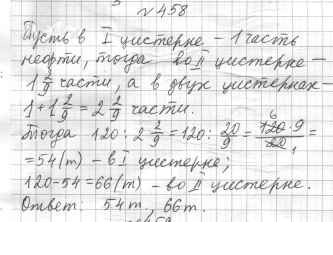 №458
Пусть в I цистерне – 1 часть
нефти, тогда во II цистерне –
1 2/9 части, а в двух цистернах –
1 + 1 2/9 = 2 2/9 части.
Тогда 120 : 2 2/9 = 120 : 20/9 = 120·9/20 =
6 1
= 54 (т) – в I цистерне;
120 – 54 = 66 (т) – во II цистерне.
Ответ: 54 т, 66 т.